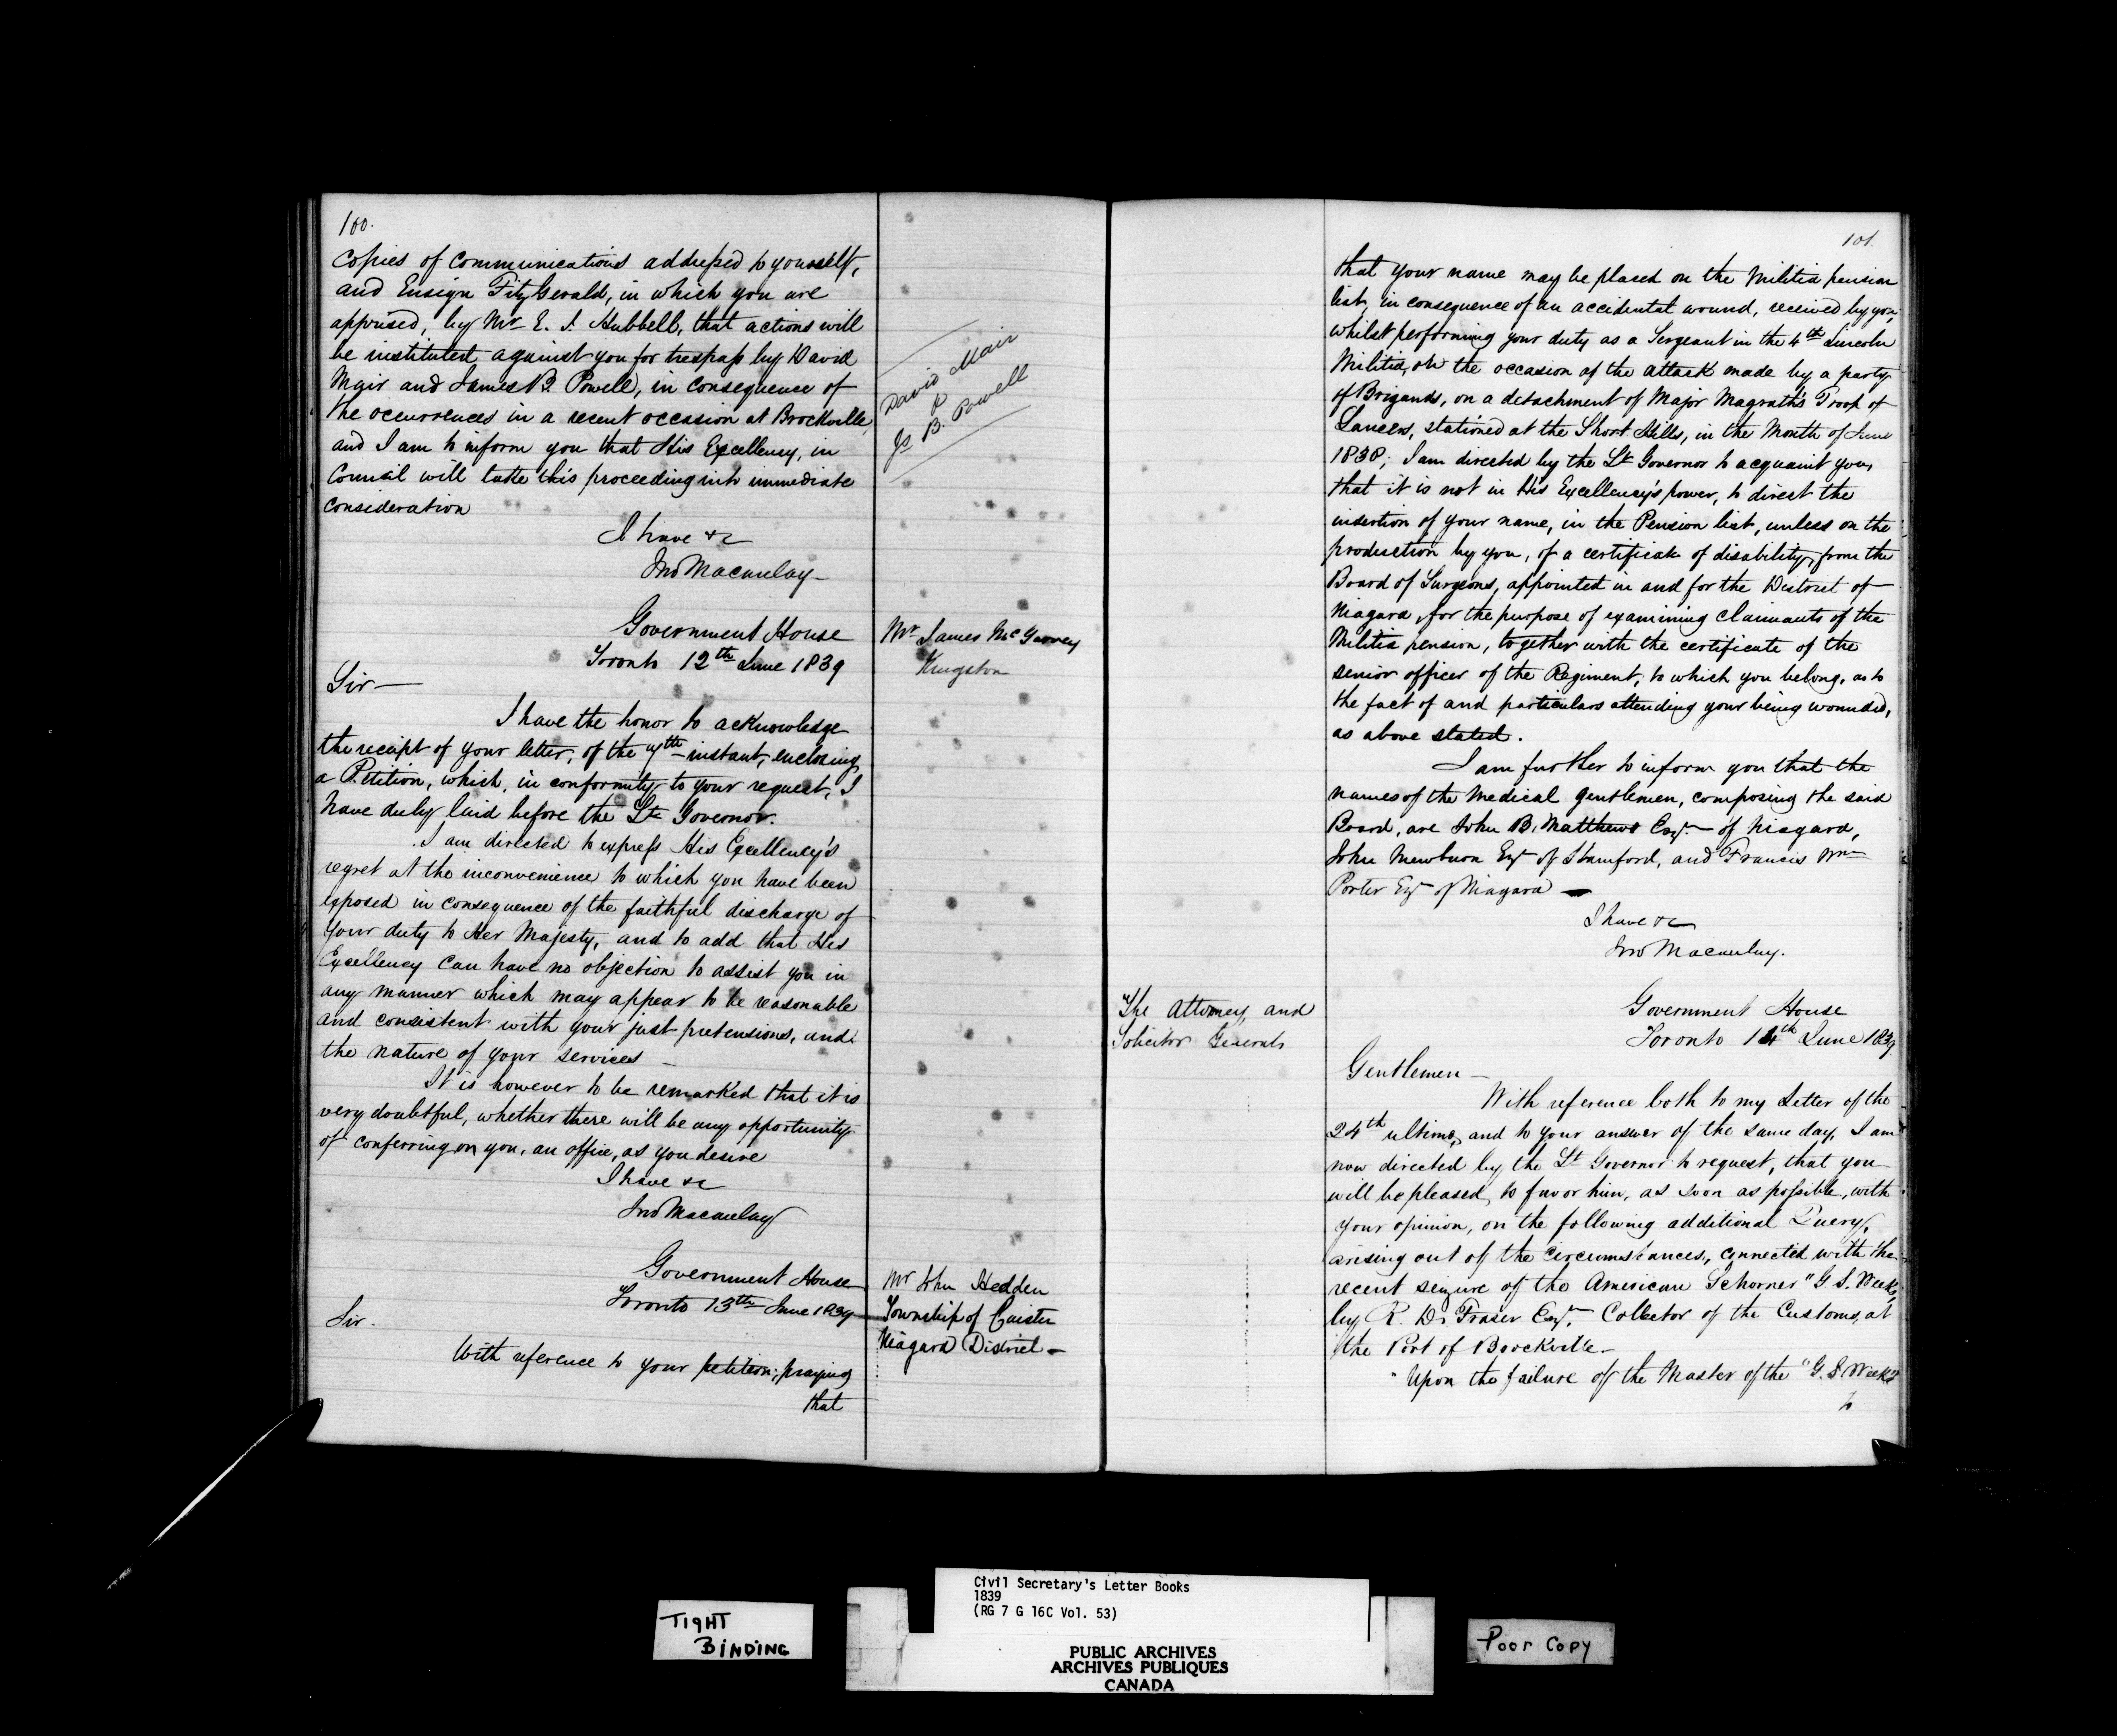 100.
copies of communications addressed to yourself,
and Ensign FitzGerald, in which you are
apprised, by Mr E. J. Hubbell, that actions will
be instituted against you for trespass by David
Mair and James B. Powell, in consequence of
the occurrences in a recent occasion at Brockville,
and I am to inform you that His Excellency, in
Council will take this proceeding into immediate
consideration
I have &c
Jno Macaulay
David Mair
&
Js B. Powell
Government House
Toronto 12th June 1839
Mr James McGarvey
Kingston
Sir
I have the honor to acknowledge
the receipt of your letter, of the 7th instant, enclosing
a Petition, which, in conformity to your request, I
have duly laid before the Lt Governor.
I am directed to express His Excellency's
regret at the inconvenience to which you have been
exposed in consequence of the faithful discharge of
your duty to Her Majesty, and to add that His
Excellency can have no objection to assist you in
any manner which may appear to be reasonable
and consistent with your just pretensions, and
the nature of your services
It is however to be remarked that it is
very doubtful, whether there will be any opportunity
of conferring on you, an office, as you desire
I have &c
Jno Macaulay
Government House
Toronto 13th June 1839
Mr John Hedden
Township of Caistor
Niagara District
Sir.
With reference to your petition, praying
that
101.
that your name may be placed on the Militia pension
list, in consequence of an accidental wound, received by you,
whilst performing your duty as a Sergeant in the 4th Lincoln
Militia, on the occasion of the attack made by a party
of Brigands, on a detachment of Major Magrath's Troop of
Lancers, stationed at the Short Hills, in the Month of June
1838; I am directed by the Lt Governor to acquaint you,
that it is not in His Excellency's power, to direct the
insertion of your name, in the Pension list, unless on the
production by you, of a certificate of disability, from the
Board of Surgeons, appointed in and for the District of
Niagara, for the purpose of examining claimants of the
Militia pension, together with the certificate of the
senior officer of the Regiment, to which you belong, as to
the fact of and particulars attending your being wounded,
as above stated.
I am further to inform you that the
names of the Medical Gentlemen, composing the said
Board, are John B. Matthews Esqr. of Niagara,
John Mewburn Esqr of Stamford, and Francis Wm
Porter Esqr of Niagara
I have &c
Jno Macaulay.
The Attorney and
Solicitor Generals
Government House
Toronto 14th June 1839
Gentlemen
With reference both to my Letter of the
24th ultimo, and to your answer of the same day, I am
now directed by the Lt Governor to request, that you
will be pleased, to favor him, as soon as possible, with
your opinion, on the following additional Query,
arising out of the circumstances, connected with the
recent seizure of the American Schooner "G S. Weeks"
by R. D. Fraser Esqr. Collector of the Customs, at
the Port of Brockville.
"Upon the failure of the Master of the "G. S Weeks"
to
TIGHT
BINDING
Civil Secretary's Letter Books
1839
(RG 7 G 16C Vol. 53)
PUBLIC ARCHIVES
ARCHIVES PUBLIQUES
CANADA
Poor Copy